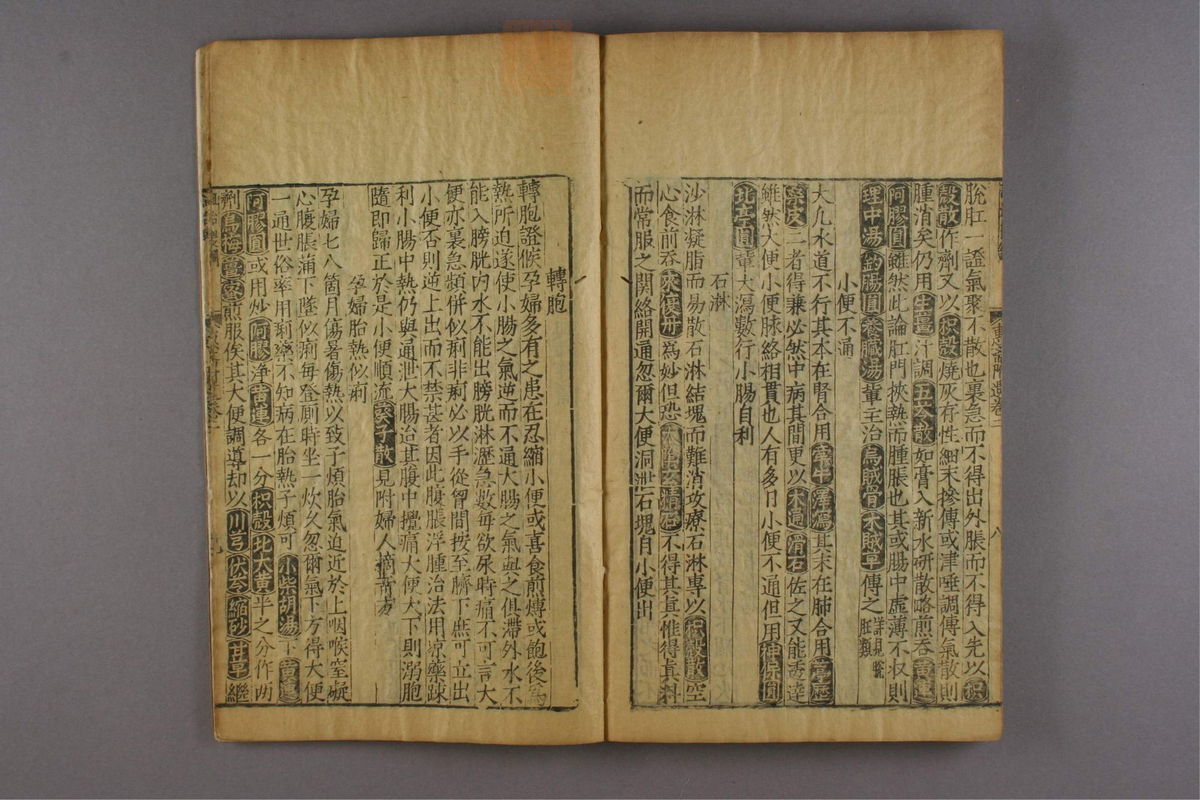 脫肛一證氣聚不散也裏急而不得出外脹而不得入先以枳
殼散作劑又以枳殼燒灰存性細末摻傅或津唾調傅氣散則
腫消矣仍用生薑汁調五苓散如膏入新水研散略煎吞黃連
阿膠圓雖然此論肛門挾熱而腫脹也其或腸中虛薄不收則
理中湯釣腸圓養臟湯軰主治烏賊骨木賊草傅之詳見脫肛類
小便不通
大凡水道不行其本在腎合用牽牛澤瀉其末在肺合用葶歷
桑皮二者得兼必然中病其間更以木通滑石佐之又能透達
雖然大便小便脉絡相貫也人有多日小便不通但用神保圓
北亭圓軰大瀉數行小腸自利
石淋
沙淋凝脂而易散石淋結塊而難消攻療石淋專以枳殼散空
心食前吞來復丹爲妙但恐不得其眞惟得眞料
而常服之関絡開通忽爾大便洞泄石塊自小便出
轉胞
轉胞證候孕婦多有之患在忍縮小便或喜食煎煿或飽後爲
熱所迫遂使小腸之氣逆而不通大腸之氣與之俱滯外水不
能入膀胱內水不能出膀胱淋瀝急數每欲尿時痛不可言大
便亦裏急頻併似痢非痢必以手從胷間按至臍下庶可立出
小便否則逆上出而不禁甚者因此腹脹浮腫治法用凉藥踈
利小腸中熱仍與通泄大腸迨其腹中攪痛大便大下則溺胞
隨即歸正於是小便順流葵子散見附婦人摘奇方
孕婦胎熱似痢
孕婦七八箇月傷暑傷熱以致子煩胎氣迫近於上咽喉窒礙
心腹脹滿下墜似痢每登厠時坐一炊久忽爾氣下方得大便
一通世俗率用痢藥不知病在胎熱子煩可小柴胡湯下黃連
阿膠圓或用炒阿膠淨黃連各一分枳殼北大黃半之分作兩
劑烏梅薑蜜煎服俟其大便調導却以川芎伏苓縮砂甘草繼